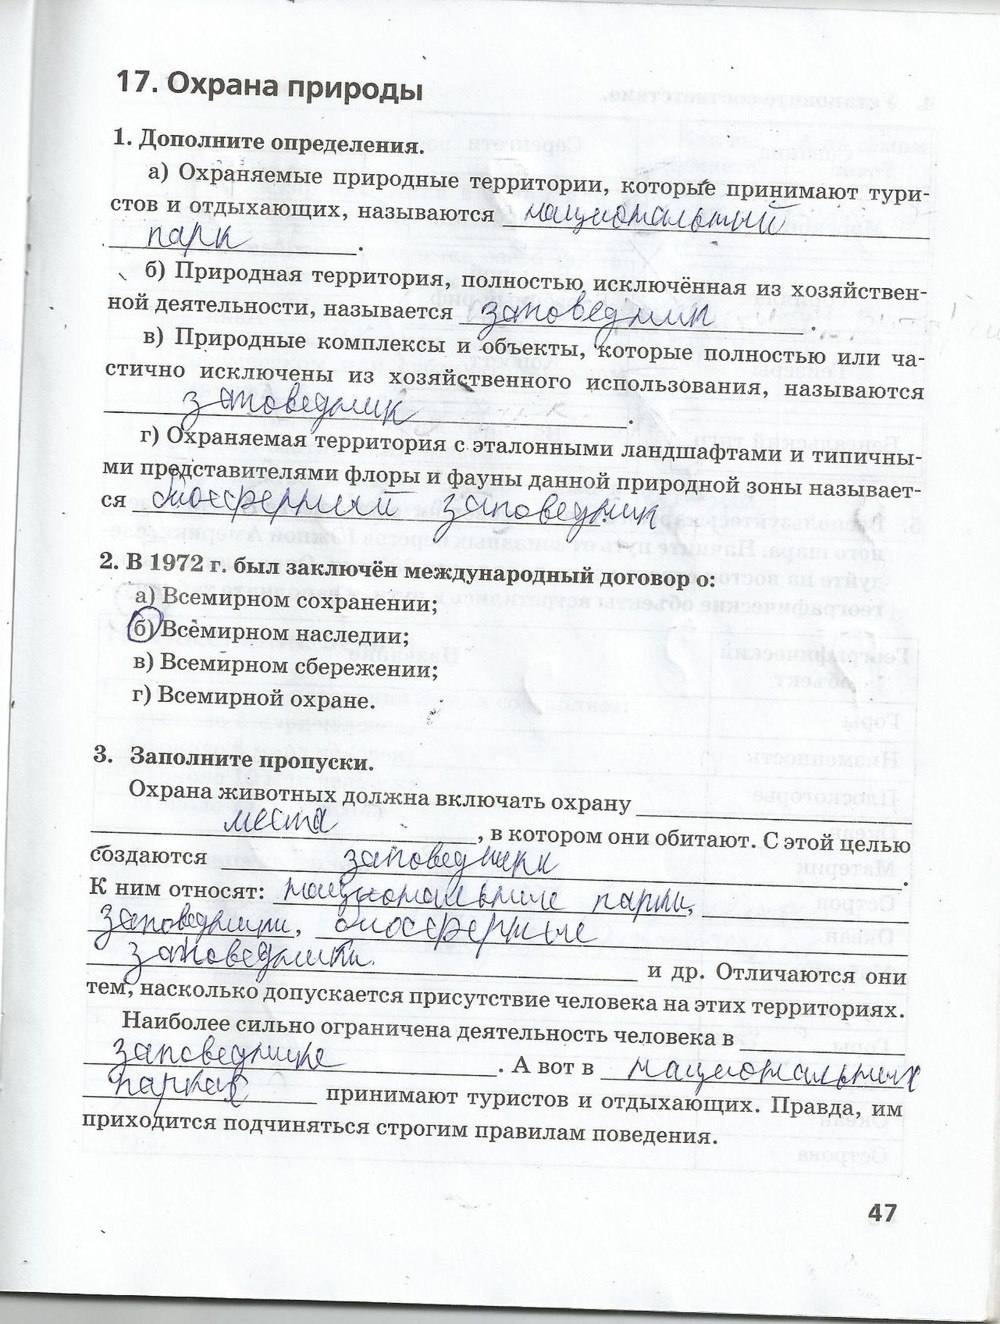 17. Охрана природы
1. Дополните определения.
а) Охраняемые природные территории, которые принимают тури-
стов и отдыхающих, называются национальный
парк.
б) Природная территория, полностью исключённая из хозяйствен-
ной деятельности, называется заповедник.
в) Природные комплексы и объекты, которые полностью или ча-
стично исключены из хозяйственного использования, называются
заповедник.
г) Охраняемая территория с эталонными ландшафтами и типичны-
ми представителями флоры и фауны данной природной зоны называет-
ся биосферный заповедник
2. В 1972 г. был заключён международный договор о:
а) Всемирном сохранении;
б) Всемирном наследии;
в) Всемирном сбережении;
г) Всемирной охране.
3. Заполните пропуски.
Охрана животных должна включать охрану
места, в котором они обитают. С этой целью
создаются заповедники.
К ним относят: национальные парки,
заповедники, биосферные
заповедники. и др. Отличаются они
тем, насколько допускается присутствие человека на этих территориях.
Наиболее сильно ограничена деятельность человека в
заповеднике. А вот в национальных
парках принимают туристов и отдыхающих. Правда, им
приходится подчиняться строгим правилам поведения.
47